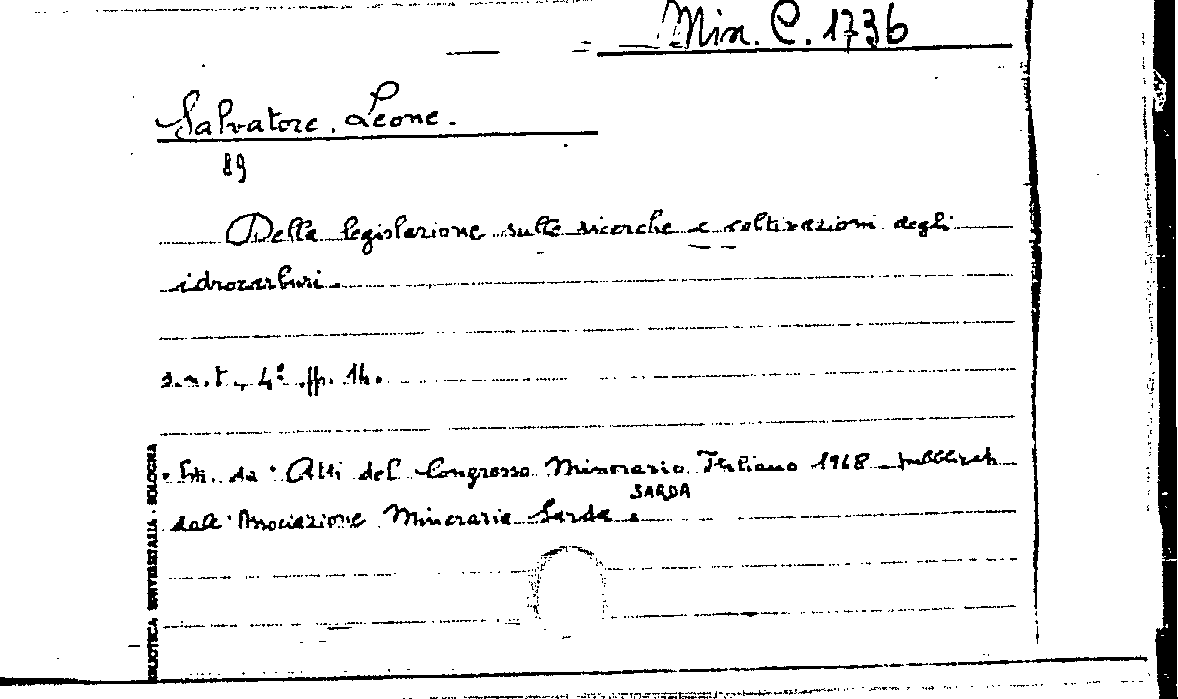 Min. C. 1736
Salvatore. Leone.
89
Della legislazione sulle ricerche e coltivazioni degli
idrocarburi.
s.n.t., 4° pp. 14.
Estr. da "Atti del Congresso Minerario Italiano 1968 pubblicati
SARDA
dall'Associazione Mineraria Sarda.
BIBLIOTECA UNIVERSITARIA - BOLOGNA